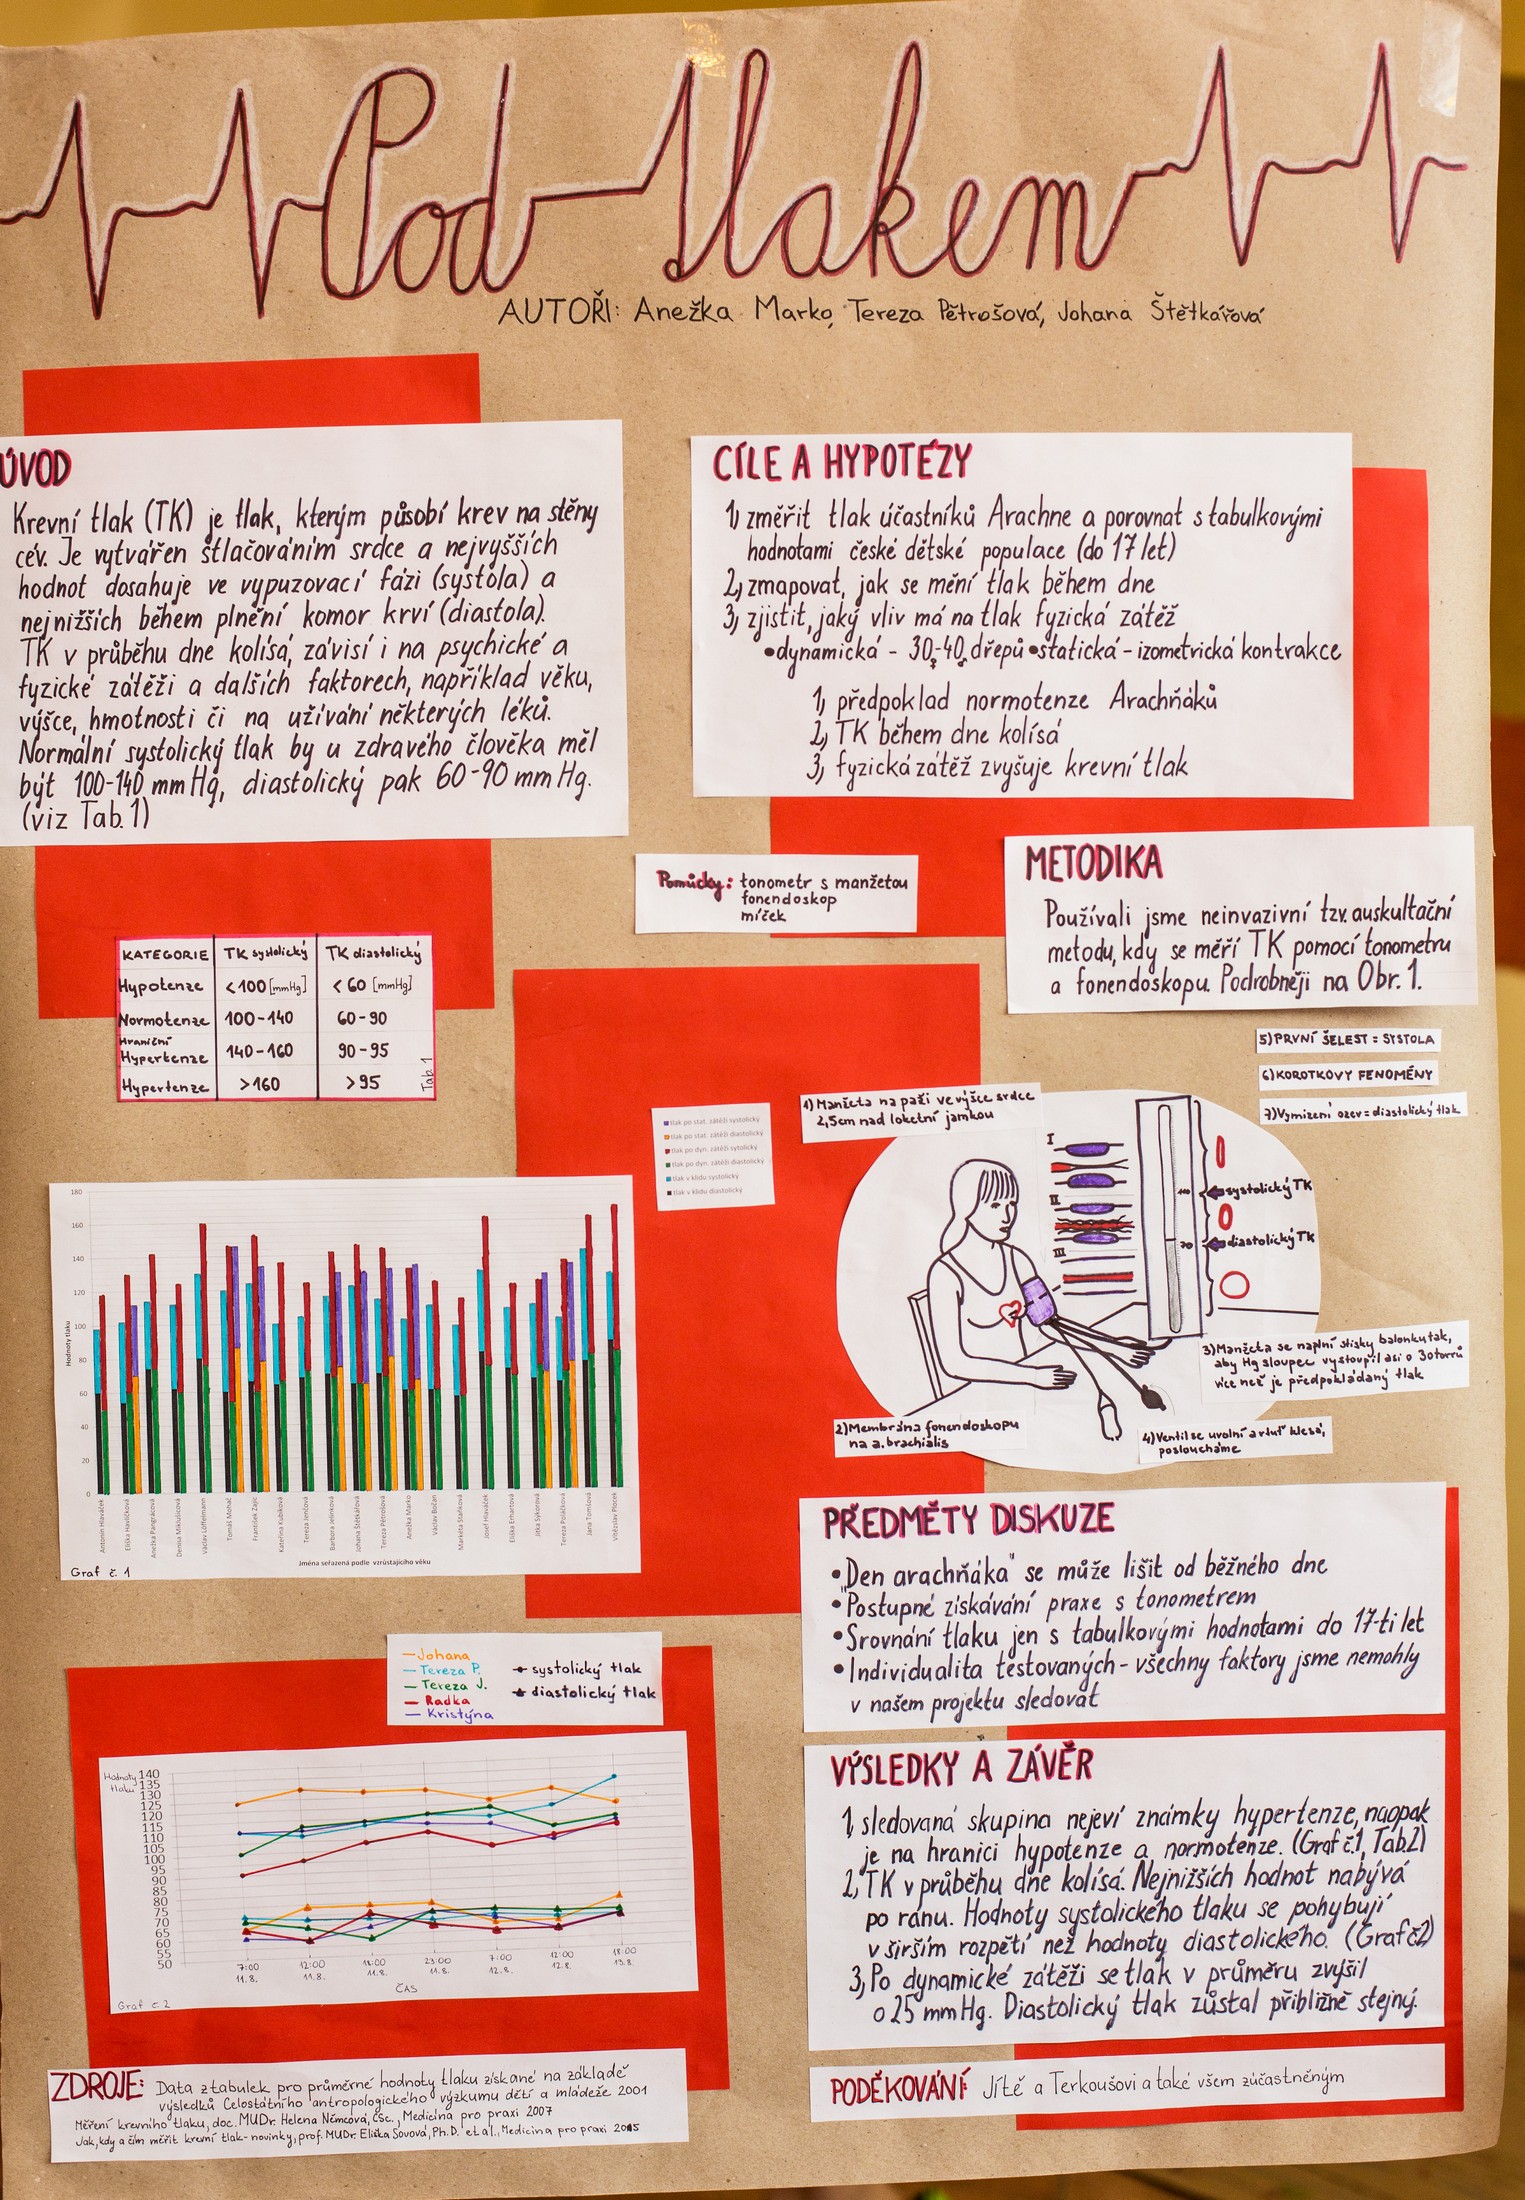 Pod tlakem
AUTOŘI: Anežka Marko, Tereza Pětrošová, Johana Štětkářová
ÚVOD
Krevní tlak (TK) je tlak, kterým působí krev na stěny
cév. Je vytvářen stlačováním srdce a nejvyšších
hodnot dosahuje ve vypuzovací fázi (systola) a
nejnižších během plnění komor krví (diastola).
TK v průběhu dne kolísá, závisí i na psychické a
fyzické zátěži a dalších faktorech, například věku,
výšce, hmotnosti či na užívání některých léků.
Normální systolický tlak by u zdravého člověka měl
být 100-140 mmHg, diastolický pak 60-90 mmHg.
(viz Tab. 1)
CÍLE A HYPOTÉZY
1, změřit tlak účastníků Arachne a porovnat s tabulkovými
hodnotami české dětské populace (do 17 let)
2, zmapovat, jak se mění tlak během dne
3, zjistit, jaký vliv má na tlak fyzická zátěž
•dynamická - 30♀-40♂ dřepů •statická - izometrická kontrakce
1, předpoklad normotenze Arachňáků
2, TK během dne kolísá
3, fyzická zátěž zvyšuje krevní tlak
Pomůcky: tonometr s manžetou
fonendoskop
míček
METODIKA
Používali jsme neinvazivní tzv. auskultační
metodu, kdy se měří TK pomocí tonometru
a fonendoskopu. Podrobněji na Obr. 1.
KATEGORIE TK systolický TK diastolický
Hypotenze <100 [mmHg] <60 [mmHg]
Normotenze 100-140 60-90
Hraniční Hypertenze 140-160 90-95
Hypertenze >160 >95
Tab. 1
5) PRVNÍ ŠELEST = SYSTOLA
6) KOROTKOVY FENOMÉNY
7) Vymizení ozev = diastolický tlak
1) Manžeta na paži ve výšce srdce
2,5cm nad loketní jamkou
I
II
III
140
70
systolický TK
diastolický TK
3) Manžeta se naplní stisky balonku tak,
aby Hg sloupec vystoupil asi o 30 torrů
více než je předpokládaný tlak
2) Membrána fonendoskopu
na a. brachialis
4) Ventil se uvolní a rtuť klesá,
posloucháme
tlak po stat. zátěži systolický
tlak po stat. zátěži diastolický
tlak po dyn. zátěži sytolický
tlak po dyn. zátěži diastolický
tlak v klidu systolický
tlak v klidu diastolický
Hodnoty tlaku
180
160
140
120
100
80
60
40
20
0
Antonín Hlaváček
Eliška Havlíčková
Anežka Pangrácová
Denisa Mikiušcová
Václav Löffelmann
Tomáš Mohač
František Zajíc
Kateřina Kubíková
Tereza Jenčová
Barbora Jelínková
Johana Štětkářová
Tereza Pětrošová
Anežka Marko
Václav Bočan
Markéta Staňková
Josef Hlaváček
Eliška Erhartová
Jitka Sýkorová
Tereza Poláčková
Jana Tomšová
Vítězslav Plocek
Jména seřazená podle vzrůstajícího věku
Graf č. 1
Johana
Tereza P.
Tereza J.
Radka
Kristýna
systolický tlak
diastolický tlak
Hodnoty tlaku
140
135
130
125
120
115
110
105
100
95
90
85
80
75
70
65
60
55
50
7:00 11.8.
12:00 11.8.
18:00 11.8.
23:00 11.8.
7:00 12.8.
12:00 12.8.
18:00 13.8.
ČAS
Graf č. 2
PŘEDMĚTY DISKUZE
•„Den arachňáka“ se může lišit od běžného dne
•Postupné získávání praxe s tonometrem
•Srovnání tlaku jen s tabulkovými hodnotami do 17-ti let
•Individualita testovaných - všechny faktory jsme nemohly
v našem projektu sledovat
VÝSLEDKY A ZÁVĚR
1, sledovaná skupina nejeví známky hypertenze, naopak
je na hranici hypotenze a normotenze. (Graf č.1, Tab.2)
2, TK v průběhu dne kolísá. Nejnižších hodnot nabývá
po ránu. Hodnoty systolického tlaku se pohybují
v širším rozpětí než hodnoty diastolického. (Graf č2)
3, Po dynamické zátěži se tlak v průměru zvýšil
o 25 mmHg. Diastolický tlak zůstal přibližně stejný.
ZDROJE: Data z tabulek pro průměrné hodnoty tlaku získané na základě
výsledků Celostátního antropologického výzkumu dětí a mládeže 2001
Měření krevního tlaku, doc. MUDr. Helena Němcová, CSc., Medicína pro praxi 2007
Jak, kdy a čím měřit krevní tlak-novinky, prof. MUDr. Eliška Sovová, Ph.D. et al., Medicina pro praxi 2015
PODĚKOVÁNÍ: Jítě a Terkoušovi a také všem zúčastněným